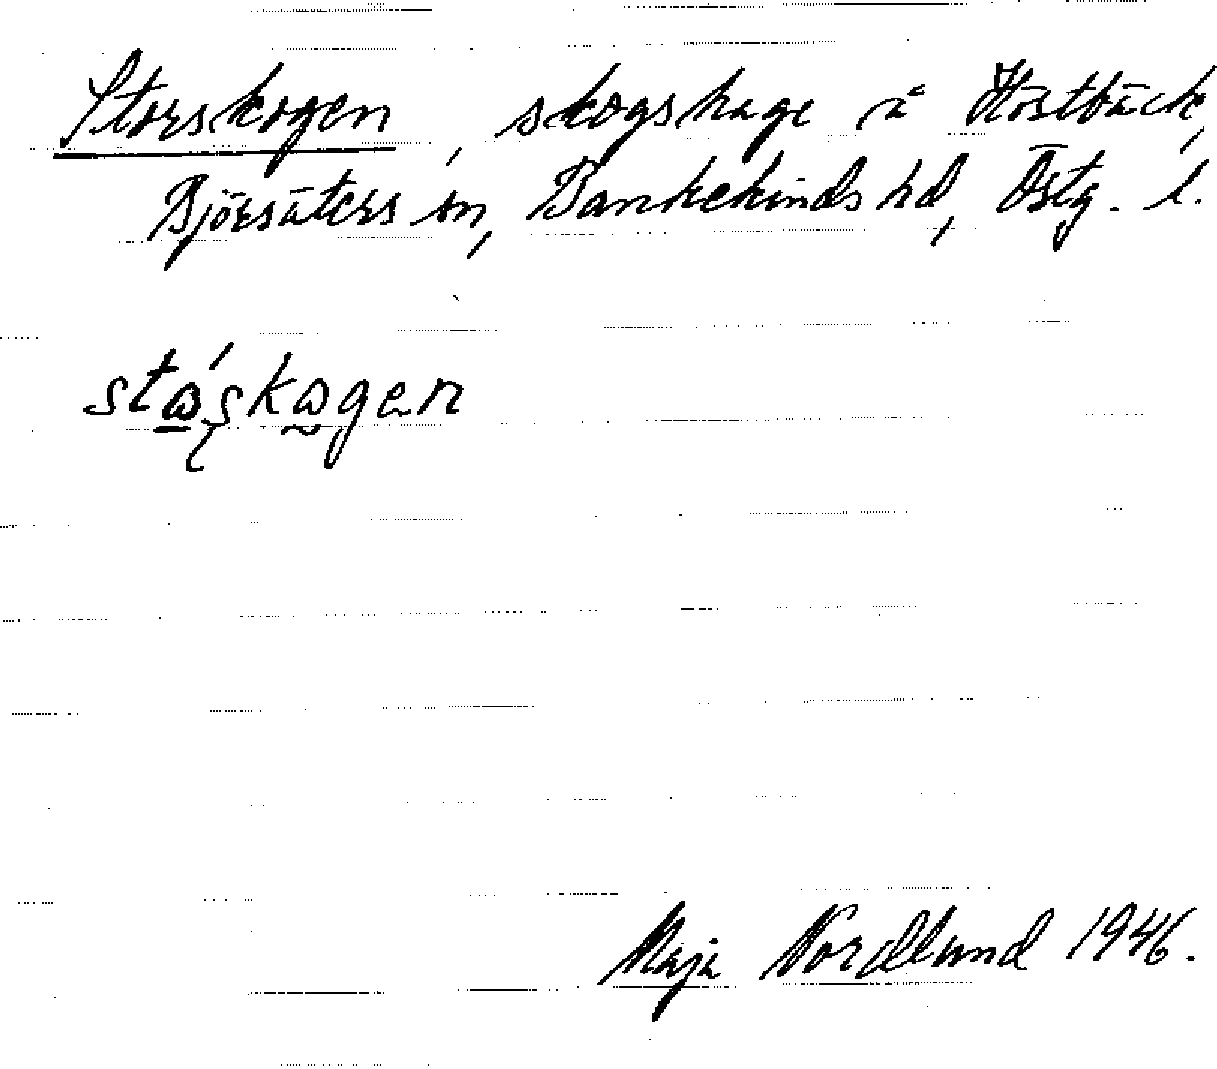 Storskogen, skogshage å Höstbäck,
Björsäters sn, Bankekinds hd, Östg. l.
stώskωgen
Maja Nordlund 1946.